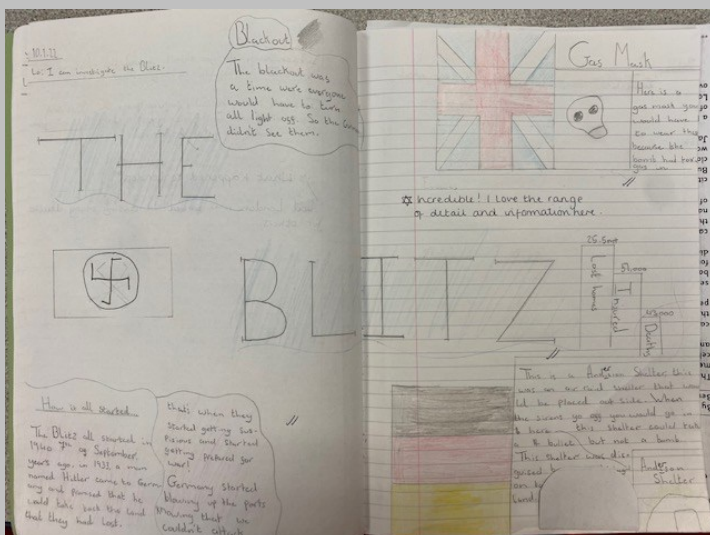 10.1.22
Lo: I can investigate the Blitz.
Blackout
The blackout was
a time were everyone
would have to turn
all light off. So the
didn't see them.
THE
BLITZ
How is all started...
The Blitz all started in
1940 7th of September.
years ago, in 1933 a man
named Hitler came to Germ
any and promised that he
would take back the land
that they had lost.
that's when they
started getting sus-
picious and started
getting prepared for
war!
Germany started
blowing up the ports
that we
couldn't
Gas Mask
Here is a
gas mask you
would have
to wear this
because the
bomb had
gas in
Incredible! I love the range
of detail and information here.
Lost homes
51,000
Injured
43,000
Deaths
This is a Anderson Shelter this
was an air raid shelter that wou
ld be placed out side. When
the sirens go off you would go in
here this shelter could take
a bullet but not a bomb.
This shelter was
Land.
Anderson
Shelter